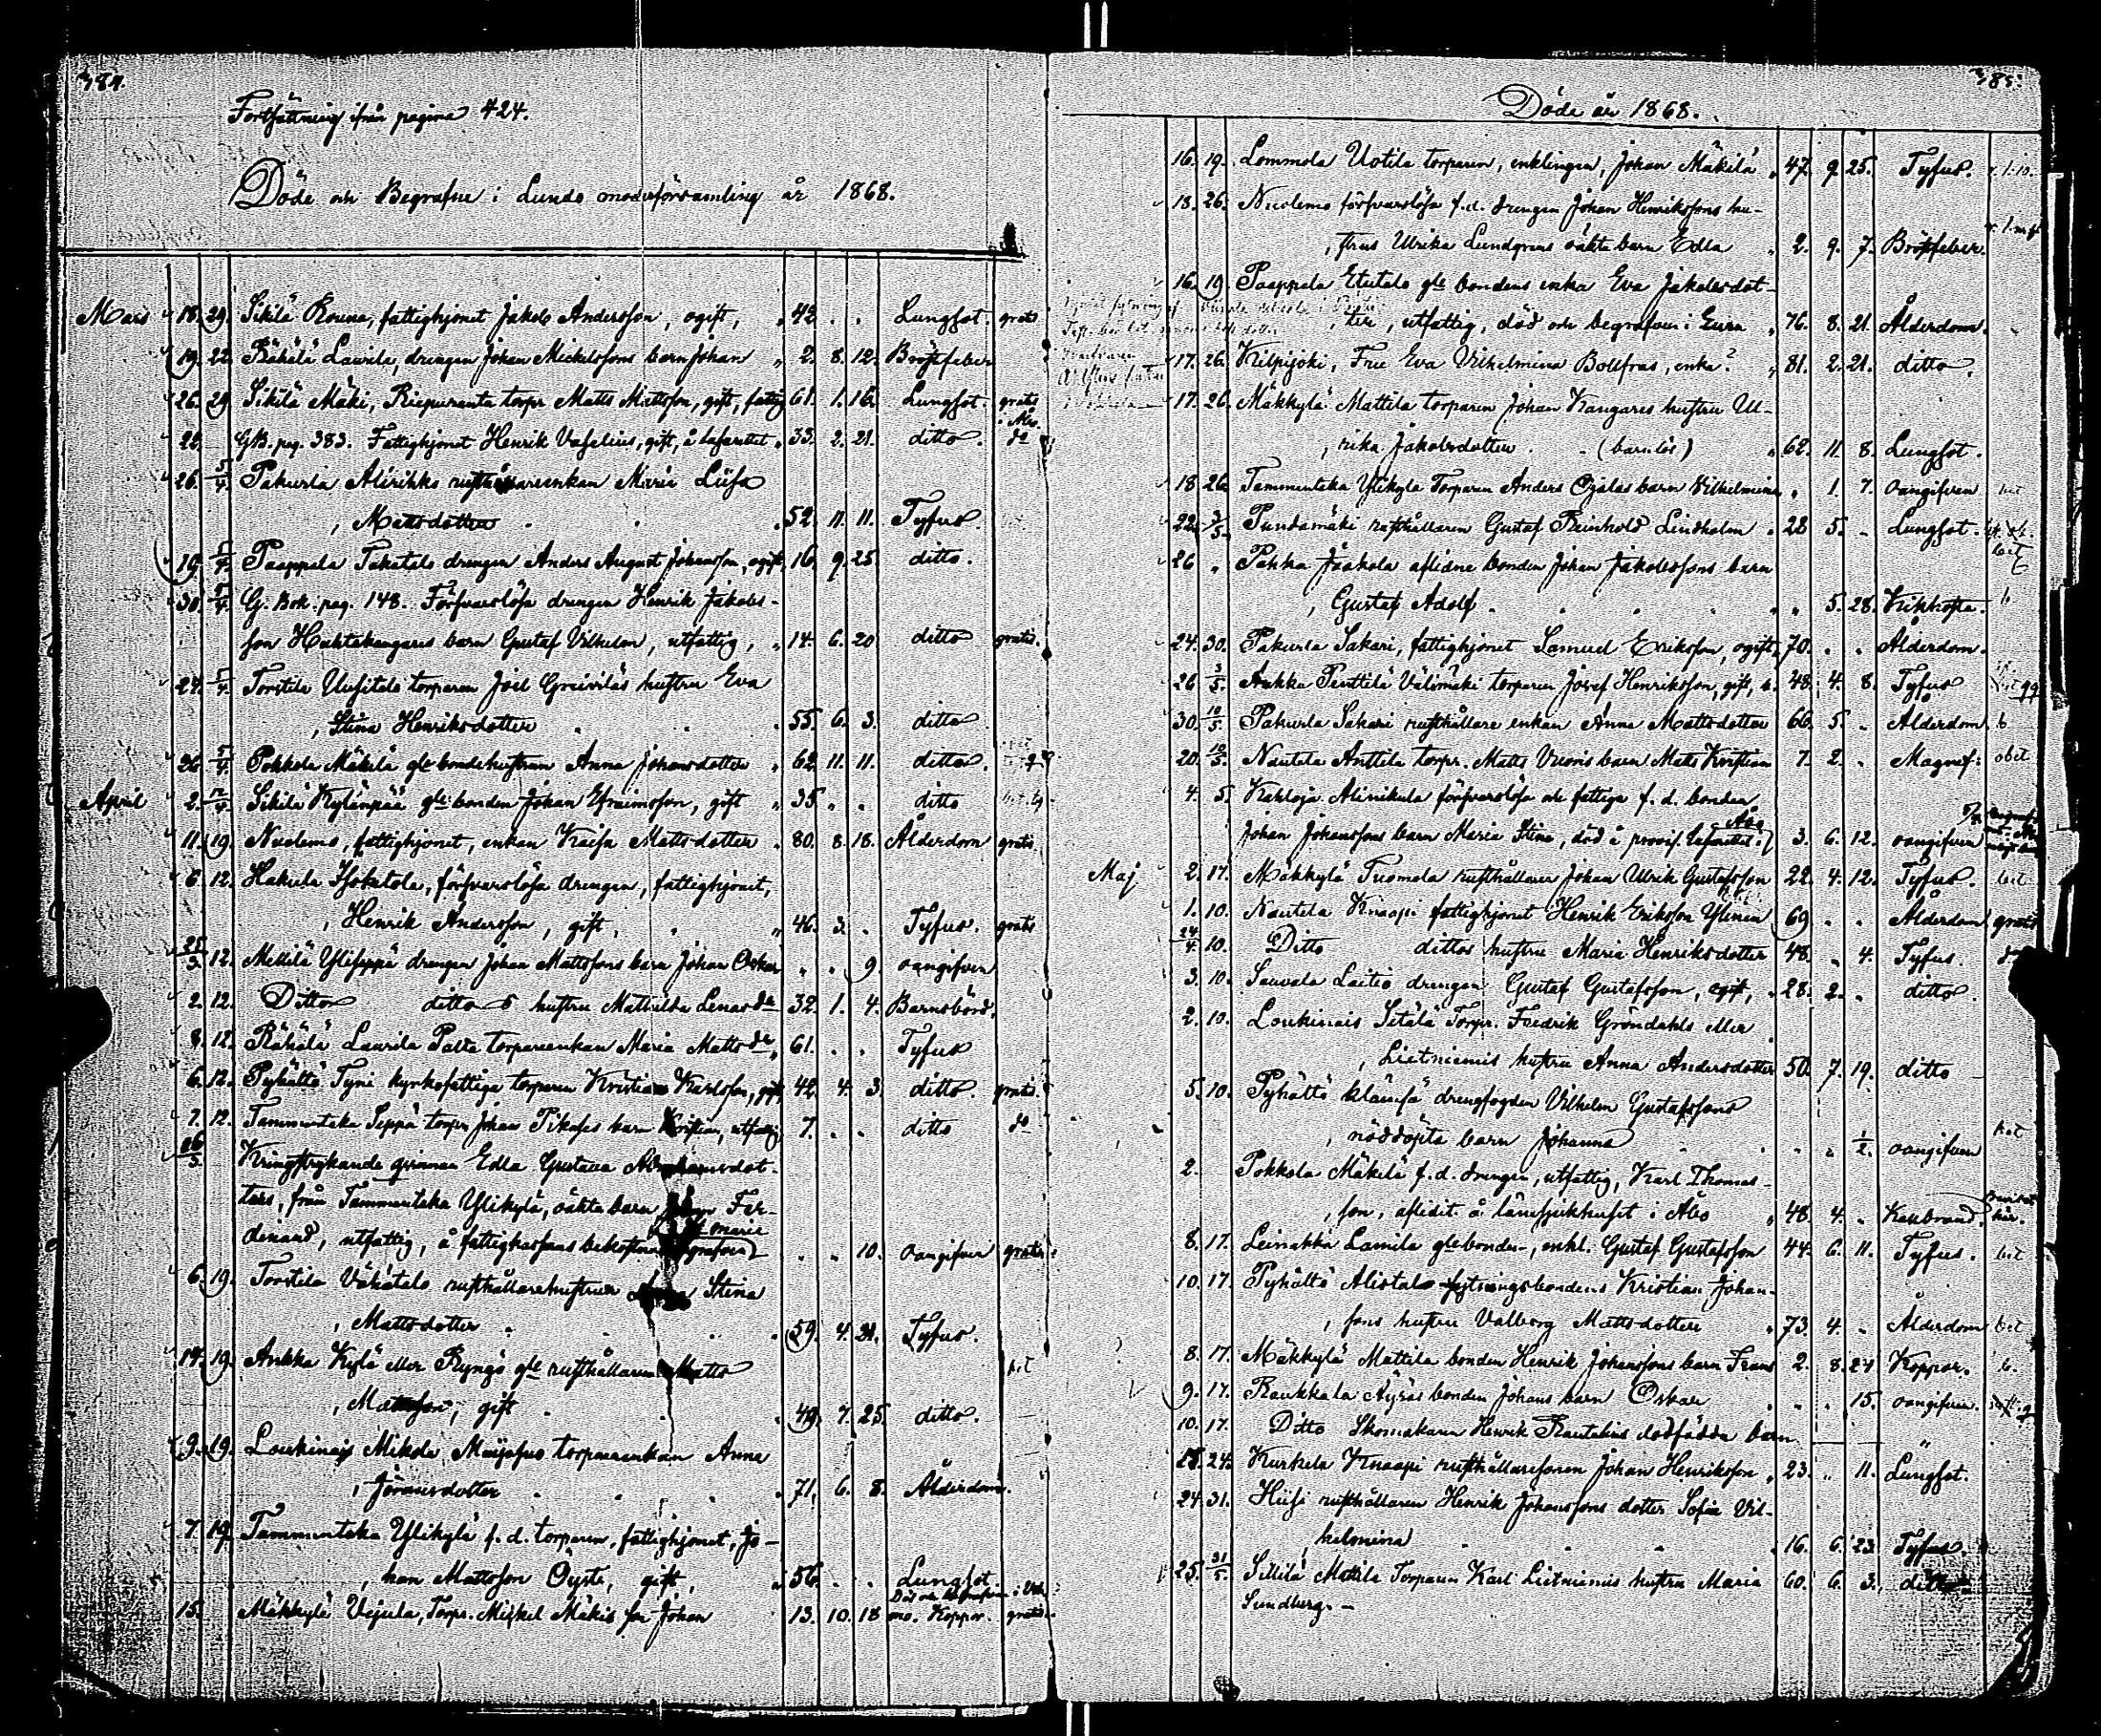 784.
Fortsättning ifrån pagina 424.
Döde och Begrafne i Lundo moderförsamling år 1868.
Mars 18. 29. Sikilä Rouna, fattighjonet Jakob Andersson, ogift, „ 42. . . Lungsot. gratis
19. 22. Rähälä Laurila, drengen Johan Mickelssons barn Johan „ 2. 8. 12. Bröstfeber
26. 29. Sikilä Mäki, Riepuranta torpr Matts Mattsson, gift, fattig 61. 1. 16. Lungsot. gratis
22. GB. pag. 383. Fattighjonet Henrik Vaselius, gift, å lasarettet „ 33. 2. 21. ditto. i Åbo. do
26. 5/4. Pakurla Alirikko rusthållareenkan Maria Liisa
, Mattsdotter . . 52. 11. 11. Tyfus
19. 5/4. Paappala Takatalo drengen Anders August Johansson, ogift, 16. 9. 25. ditto.
30. 5/4. G. Bok. pag. 148. Försvarslösa drengen Henrik Jakobs-
son Huhtakangares barn Gustaf Vilhelm, utfattig, „ 14. 6. 20 ditto gratis.
24. 5/4. Torstila Uusitalo torparen Joel Greivilas hustru Eva
, Stina Henriksdotter . . 55. 6. 3. ditto
26. 5/4. Pokkola Mäkilä gle bondehustrun Anna Johansdotter „ 62. 11. 11. ditto.
April 2. 12/4. Sikilä Kylänpää gle bonden Johan Efraimsson, gift „ 35. . . ditto
11. 19. Nuolemo, fattighjonet, enkan Kaisa Mattsdotter . 80. 8. 18. Ålderdom gratis
6. 12. Hakula Isokatola, försvarslösa drengen, fattighjonet,
, Henrik Andersson, gift, „ „ 46. 3. . Tyfus. gratis
25/3. 12. Mellilä Ylissippä drengen Johan Mattssons barn Johan Oskar „ „ 9. oangifven
2. 12. Ditto ditto s hustru Mathilda Lenasdr 32. 1. 4. Barnsbörd.
8. 12. Rähälä Laurila Palta torpareenkan Maria Mattsdr „ 61. . . Tyfus
6. 12. Pyhältö Tyni kyrkofattiga torparen Kristian Karlsson, gift, 42. 4. 3. ditto. gratis
7. 12. Tammentaka Seppä torpr Johan Pikases barn Kristian, utfattig 7. . . ditto do
26/3. Kringstrykande qvinnan Edla Gustava Abrahamsdot-
ters, från Tammentaka Ylikylä, oäkta barn Johan Fer-
dinand, utfattig, å fattigkassans bekostnad begrafven . „ 10. oangifven gratis
6. 19. Torstila Vähätalo rusthållarehustrun Stina
, Mattsdotter . . 59. 4. 21. Tyfus.
14. 19. Ankka Kylä eller Ryngö gle rusthållaren Matts
, Mattsson, gift . . 49. 7. 25. ditto. bet
9. 19. Loukinais Mikola Maijasuo torpareenkan Anna
, Göransdotter . . 71. 6. 8. Ålderdom.
7. 19. Tammentaka Ylikylä f. d. torparen, fattighjonet, Jo-
, han Mattsson Öysti, gift, „ 56. . . Lungsot.
15. Mäkkylä Vejula, Torpr. Mickel Mäkis son Johan 13. 10. 18 Koppor. gratis.
785.
Döde år 1868.
16. 19. Lommola Uotila torparen, enklingen, Johan Mäkilä „ 47. 9. 25. Tyfus.
18. 26. Nuolemo försvarslösa f.d. drengen Johan Henrikssons hu-
, strus Ulrika Lundgrens oäkta barn Edla „ 2. 9. 7. Bröstfeber.
16. 19. Paappala Etutalo gle bondens enka Eva Jakobsdot-
, ter, utfattig, död och begrafven i Eura „ 76. 8. 21. Ålderdom.
17. 26. Kilpijoki, Fru Eva Vilhelmina Bollfras, enka? „ 81. 2. 21. ditto.
17. 26. Mäkkylä Mattila torparen Johan Kangares hustru Ul-
, rika Jakobsdotter . (barnlös) „ 62. 11. 8. Lungsot.
18 26. Tammentaka Ylikylä Torparen Anders Ojalas barn Vilhelmina „ 1. 7. oangifven bet
22. 3/5. Pundamäki rusthållaren Gustaf Reinhold Lindholm . 28 5. . Lungsot.
26 „ Pahka Jaakola aflidne bonden Johan Jakobssons barn
, Gustaf Adolf . . „ „ 5. 28. Kikhosta. b
24. 30. Pakurla Sakari, fattighjonet Samuel Eriksson, ogift „ 70. . . Ålderdom.
26 3/5. Ankka Penttilä Välimäki torparen Josef Henriksson, gift, b. 48. 4. 8. Tyfus
30. 10/5. Pakurla Sakari rusthållare enkan Anna Mattsdotter 66. 5. . Ålderdom b
20. 10/5. Nautela Anttila torpr. Matts Vuoris barn Matts Kristian 7. 2. . Magref: obet
4. 5. Kahloja Alinikula försvarslösa och fattiga f. d. bonden
Johan Johanssons barn Maria Stina, död å provis. lasarettet. Åbo 3. 6. 12. oangifven
Maj 2. 17. Mäkkylä Tuomola rusthållaren Johan Ulrik Gustafsson 22. 4. 12. Tyfus. bet
1. 10. Nautela Knaapi fattighjonet Henrik Eriksson Ylinen 69. . . Ålderdom gratis
24/4. 10. Ditto dittos hustru Maria Henriksdotter 48. „ 4. Tyfus. do
3. 10. Sauvala Laitio drengen Gustaf Gustafsson, ogift, „ 28. 2. „ ditto.
2. 10. Loukinais Sitälä Torpr. Fredrik Gröndahls eller
, Lietniemis hustru Anna Andersdotter 50. 7. 19. ditto
5. 10. Pyhältö klämsä drengfogden Vilhelm Gustafssons
, nöddöpta barn Johanna . . „ „ 1/2. oangifven bet
2. Pokkola Mäkilä f. d. drengen, utfattig, Karl Thomas-
, son, aflidit å länssjukhuset i Åbo „ 48. 4. „ Kallbrand.
8. 17. Leinakka Lamila gle bonden, enkl. Gustaf Gustafsson 44. 6. 11. Tyfus. bet
10. 17. Pyhältö Alistalo sytningsbondens Kristian Johan-
, sons hustru Valborg Mattsdotter „ 73. 4. „ Ålderdom bet
8. 17. Mäkkylä Mattila bonden Henrik Johanssons barn Frans 2. 8. 24 Koppor. b.
9. 17. Raukkala Äyräs bonden Johans barn Oskar . . 15. oangifven.
10. 17. Ditto Skomakaren Henrik Rautelins dödfödda barn
18. 24. Kurkela Knaapi rusthållaresonen Johan Henriksson „ 23. „ 11. Lungsot.
24. 31. Hiisi rusthållaren Henrik Johanssons dotter Sofia Vil-
helmina . . 16. 6. 23. Tyfus.
25. 31/5. Sillilä Mattila Torparen Karl Lietniemis hustru Maria 60. 6. 3. ditto
Sundberg. –